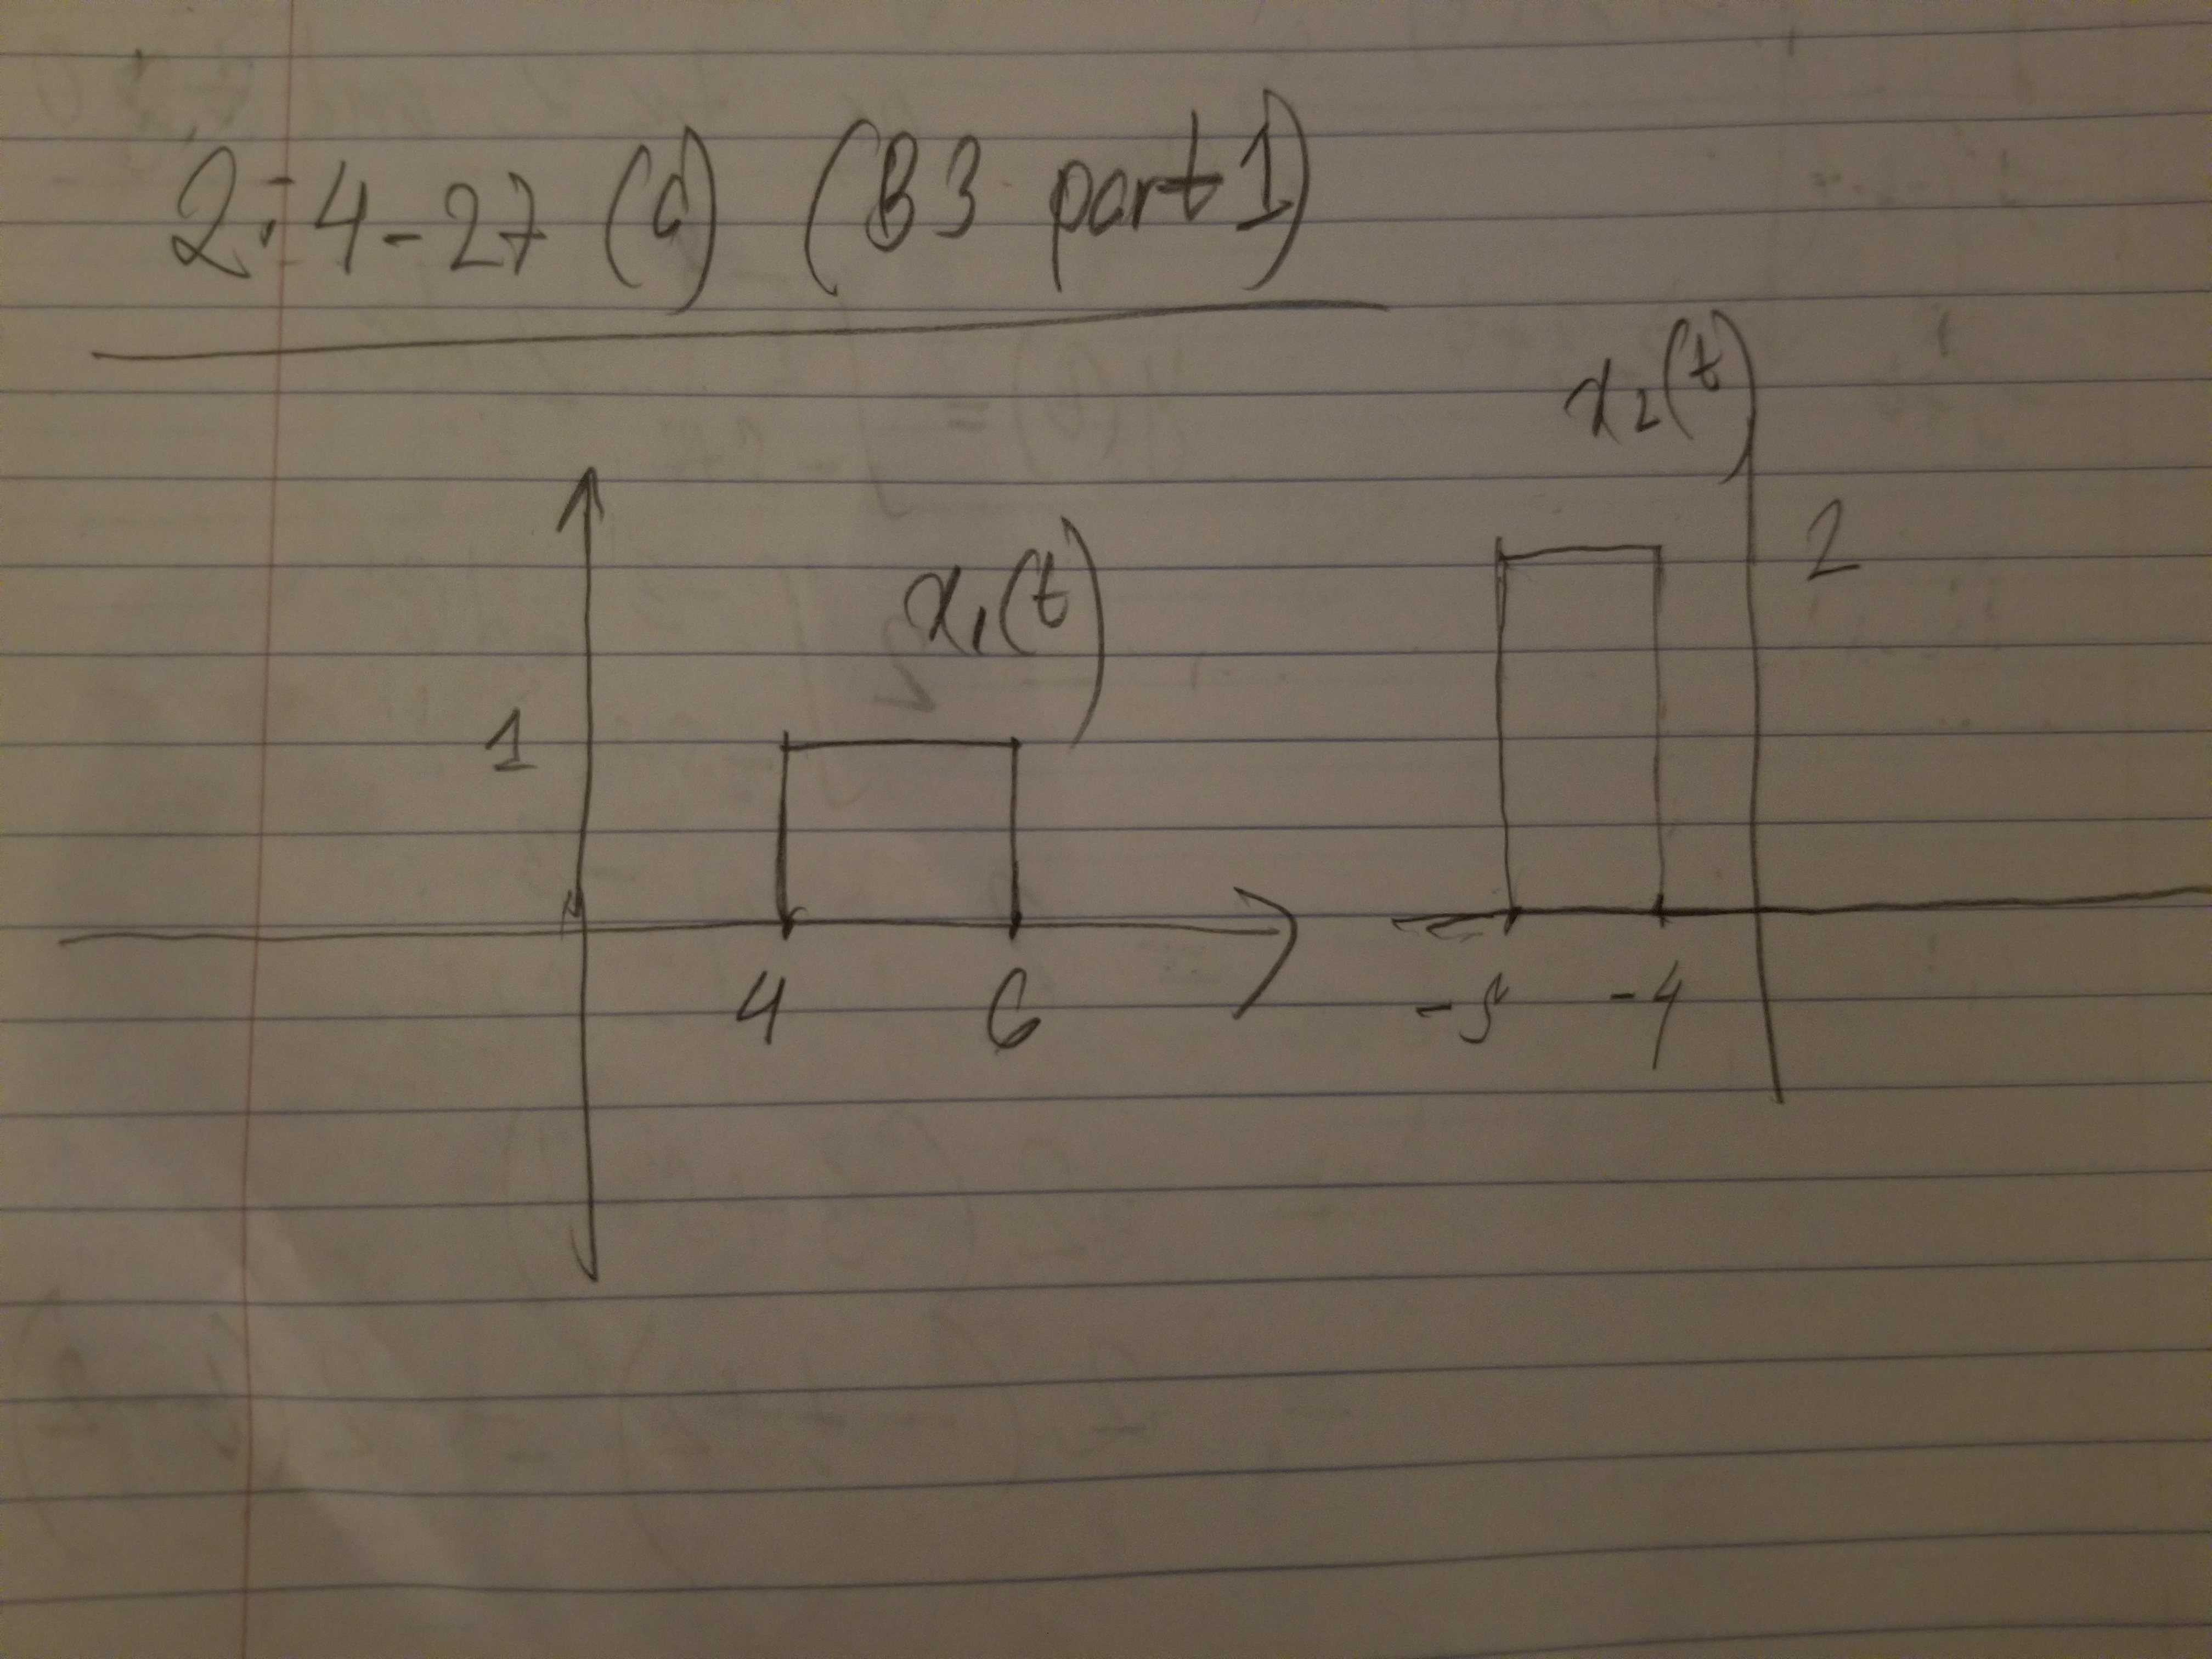 2.4-27 (c) (B3 part 1)
x₁(t)
1
4 6
x₂(t)
2
-5 -4